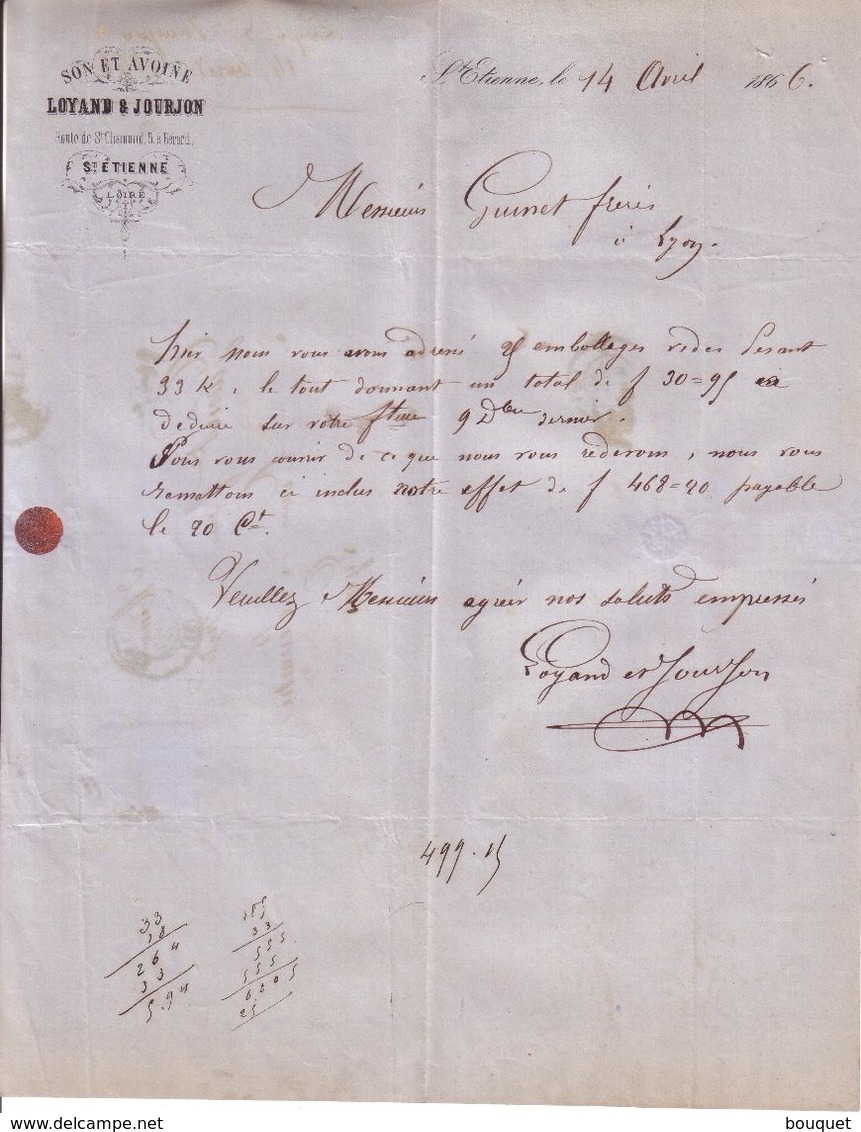 SON ET AVOINE
LOYAND & JOURJON
Route de St Chamond, 5, à Bérard,
ST ÉTIENNE
LOIRE
St Etienne, le 14 Avril 1866.
Messieurs Guinet frères
à Lyon.
Hier nous vous avons adressé 25 emballages vides Pesant
33 k, le tout donnant un total de f 30=95 à
deduire sur votre fture 9 Dbre dernier.
Pour vous couvrir de ce que nous vous redevons, nous vous
remettons ci inclus notre effet de f 468=20 payable
le 20 Ct.
Veuillez Messieurs agréer nos saluts empressés
Loyand et Jourjon
499.15
33
18
264
33
5.94
185
33
555
555
6.105
25
bouquet